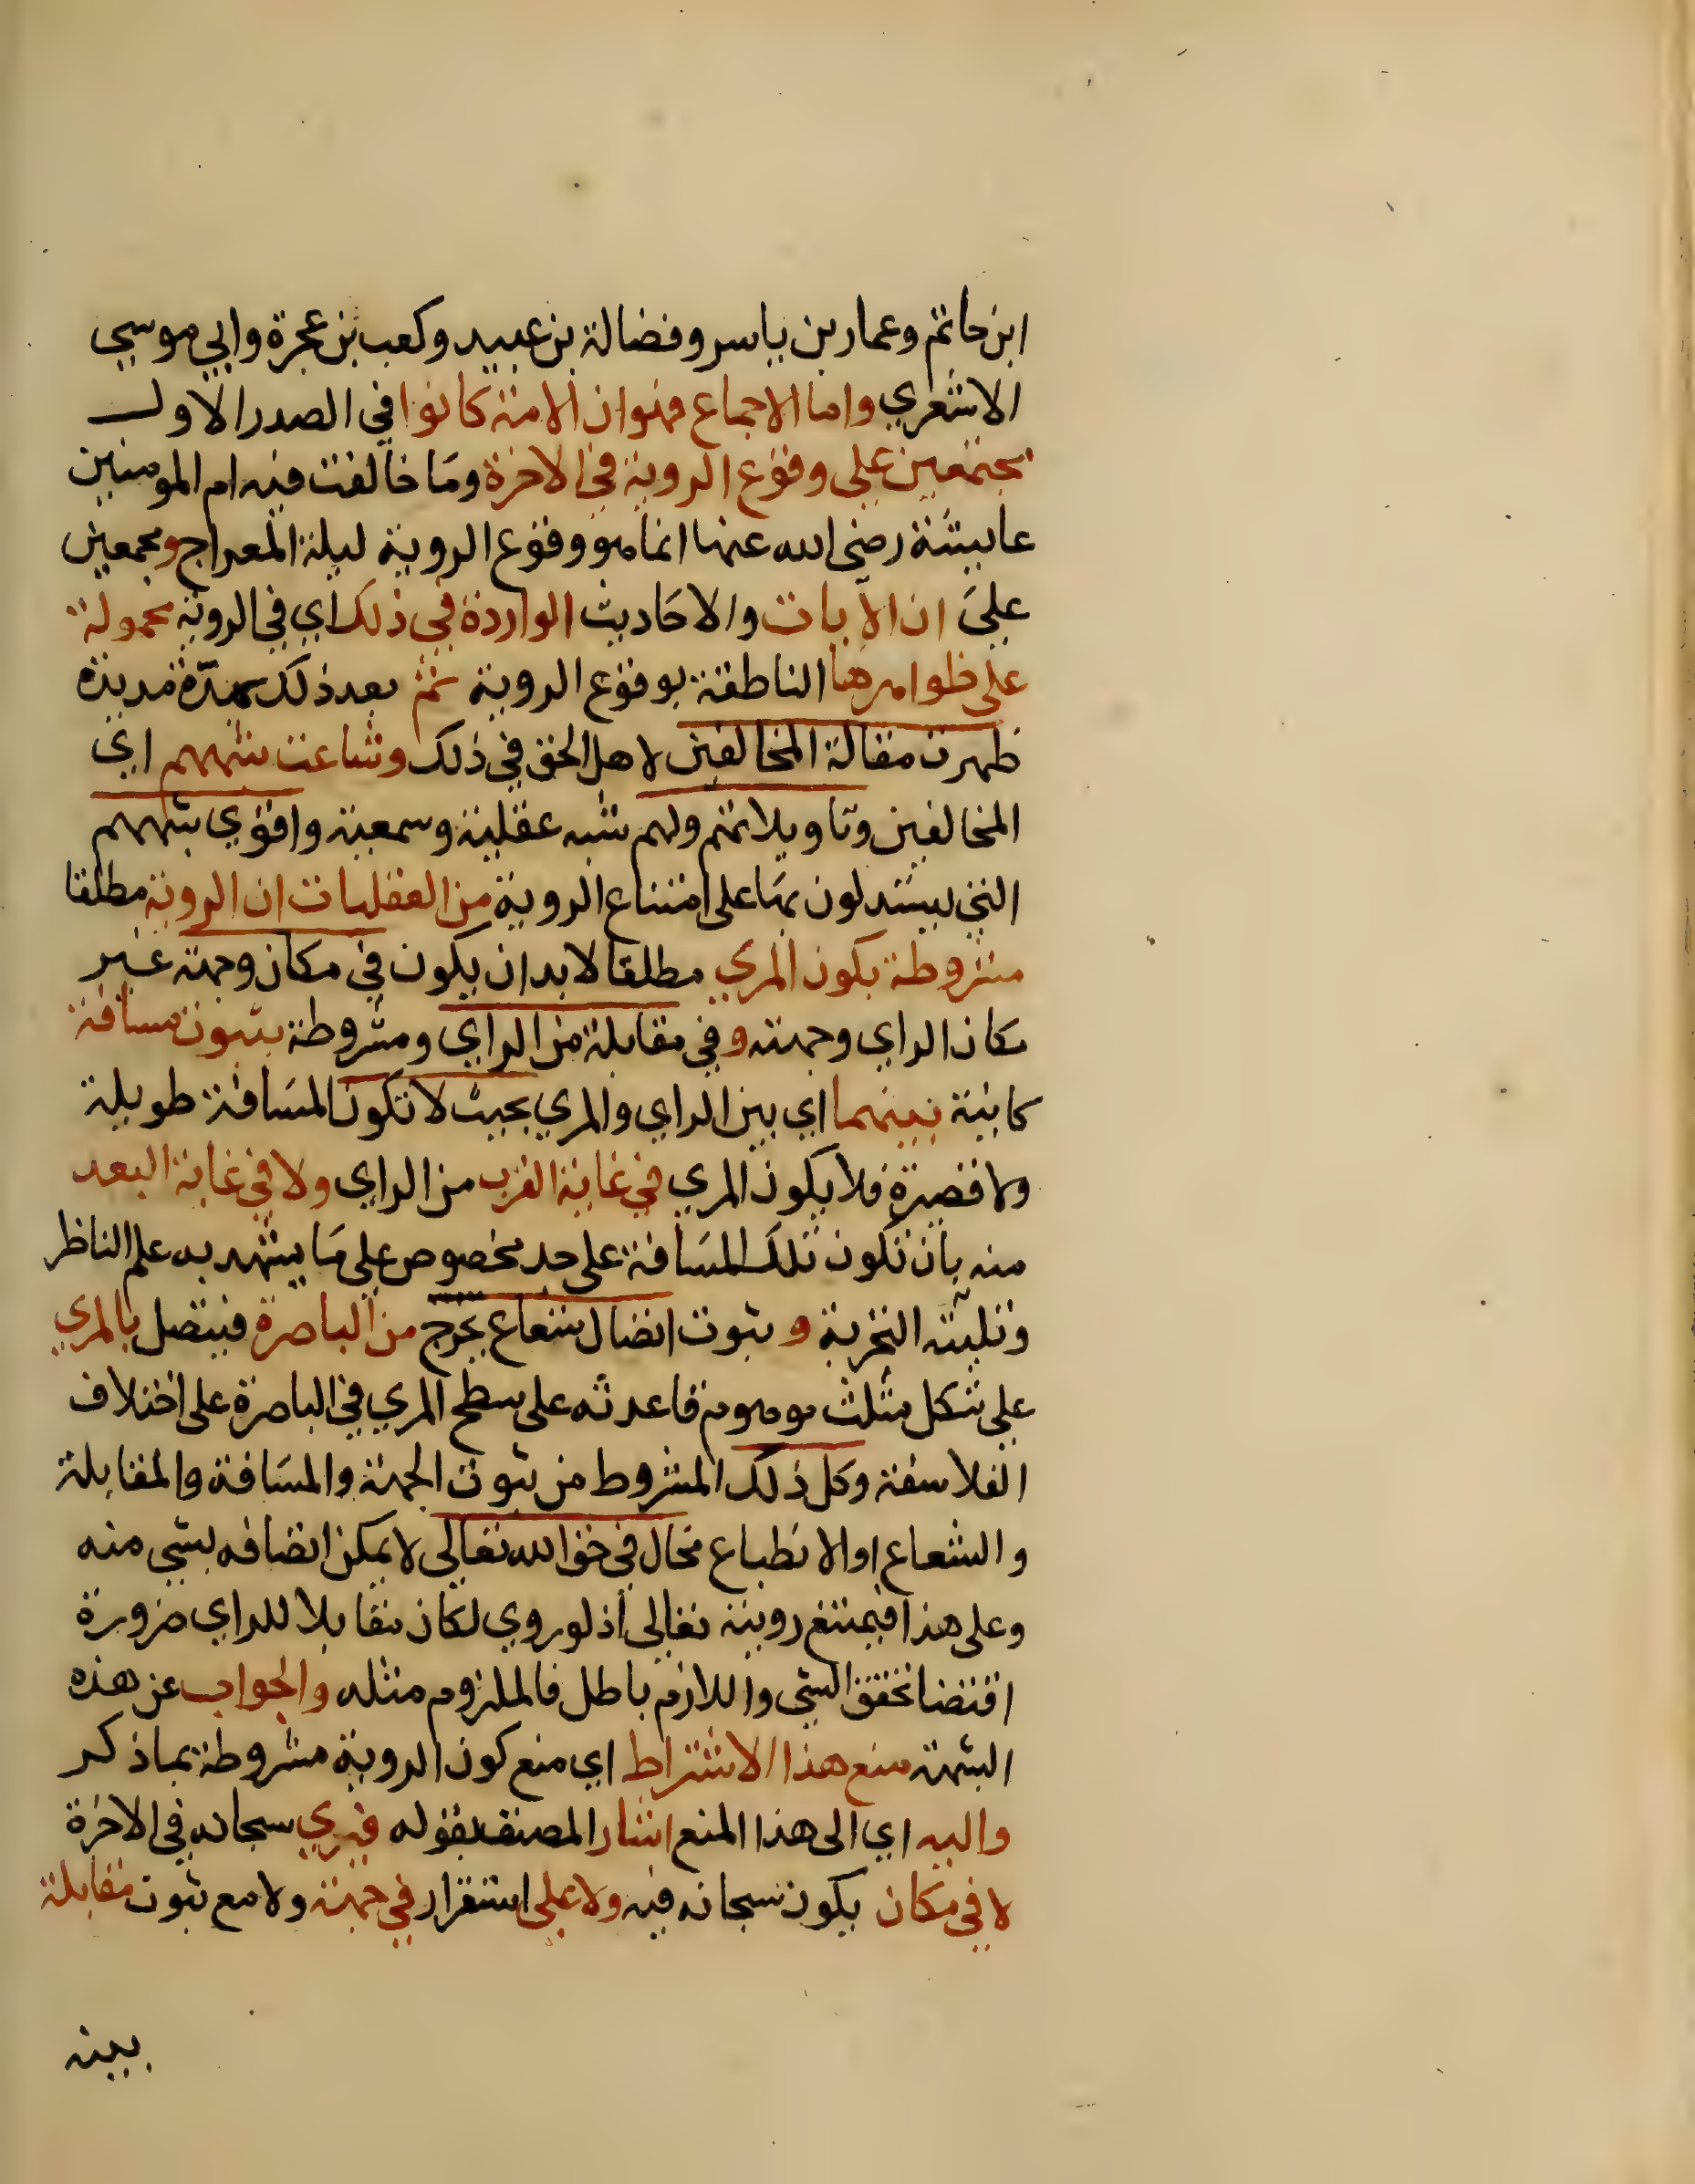 ابن حاتم وعمار بن ياسر وفضالة بن عبيد وكعب بن عجرة وابي موسي
الاشعري واما الاجماع فهو ان الامة كانوا في الصدر الاول
مجتمعين علي وقوع الروية في الاخرة وما خالفت فيه ام المومنين
عايشة رضي الله عنها انما هو وقوع الروية ليلة المعراج ومجمعين
علي ان الآيات والاحاديث الواردة في ذلك اي في الروية محمولة
علي ظواهرها الناطقة بوقوع الروية ثم بعد ذلك بمدة مديدة
ظهرت مقالة المخالفين لاهل الحق في ذلك وشاعت شبههم اي
المخالفين وتاويلاتهم ولهم شبه عقلية وسمعية واقوي شبههم
التي يستدلون بها على امتناع الروية من العقليات ان الروية مطلقا
مشروطة بكون المري مطلقا لابد ان يكون في مكان وجهة غير
مكان الراي وجهته وفي مقابلة من الراي ومشروطة بثبوت مسافة
كاينة بينهما اي بين الراي والمري بحيث لا تكون المسافة طويلة
ولا قصيرة فلا يكون المري في غاية القرب من الراي ولا في غاية البعد
منه بان تكون تلك المسافة على حد مخصوص علي ما يشهد به علم الناظر
وتلبثه التجربة و بثبوت اتصال شعاع يخرج من الباصرة فيتصل بالمري
علي شكل مثلث موهوم قاعدته على سطح المري في الباصرة على اختلاف
الفلاسفة وكل ذلك المشروط من ثبوت الجهة والمسافة والمقابلة
والشعاع او الانطباع محال في حق الله تعالي لا يمكن اتصافه بشي منه
وعلى هذا فيمتنع رويته تعالي اذ لو روي لكان مقابلا للراي ضرورة
اقتضا تحقق الشي واللازم باطل فالملزوم مثله والجواب عن هذه
الشبهة منع هذا الاشتراط اي منع كون الروية مشروطة بما ذكر
واليه اي الى هذا المنع اشار المصنف بقوله فيري سبحانه في الاخرة
لا في مكان يكون سبحانه فيه ولا علي استقرار في جهة ولا مع ثبوت مقابلة
بينه